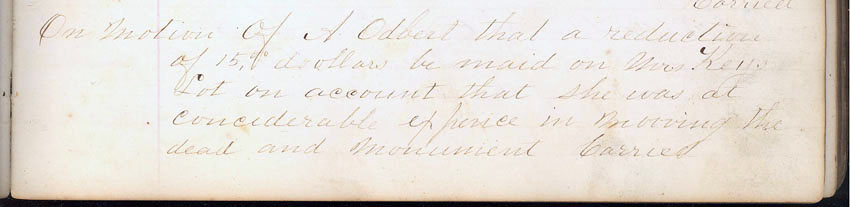 Carried
On Motion of A Odbert that a reduction
of 15,00 doollars be maid on Mrs Keys
Lot on account that she was at
conciderable expence in Mooving the
dead and Monument Carried